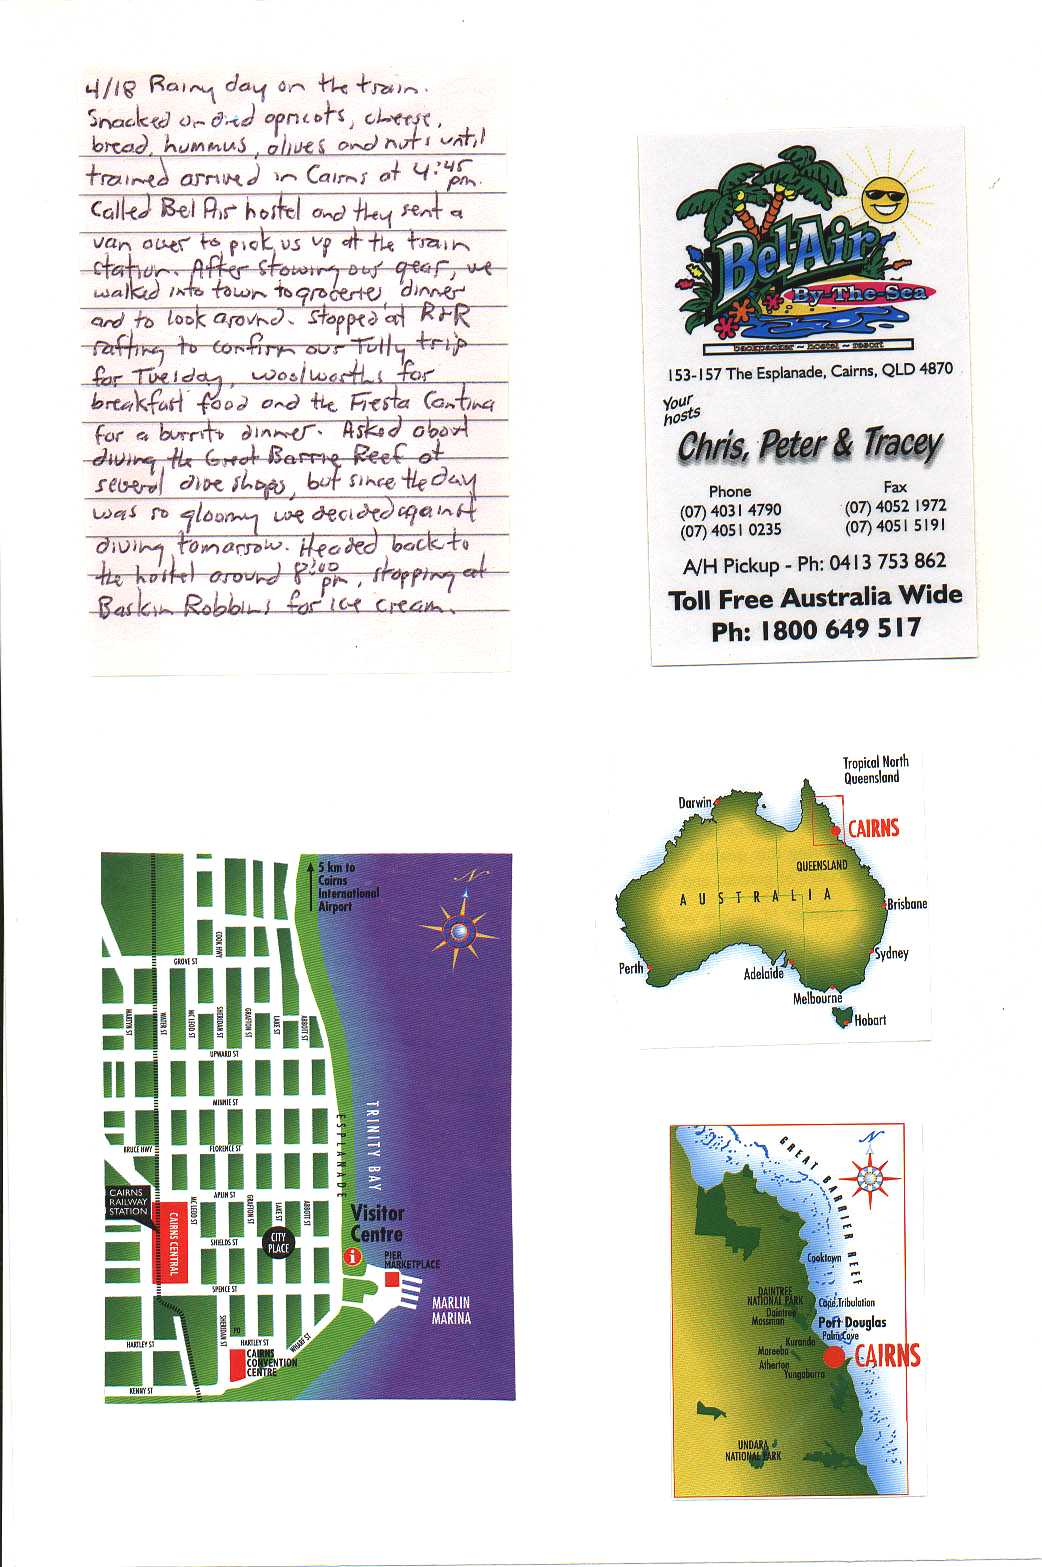 4/18 Rainy day on the train.
Snacked on dried apricots, cheese,
bread, hummus, olives and nuts until
trained arrived in Cairns at 4:45 pm.
Called Bel Air hostel and they sent a
van over to pick us up at the train
station. After stowing our gear, we
walked into town to groceries, dinner
and to look around. Stopped at R&R
rafting to confirm our Tully trip
for Tuesday, woolworths for
breakfast food and the Fiesta Cantina
for a burrito dinner. Asked about
diving the Great Barrie Reef at
several dive shops, but since the day
was so gloomy we decided against
diving tomorrow. Headed back to
the hostel around 8:00 pm, stopping at
Baskin Robbins for ice cream.
Bel Air
By-The-Sea
backpacker ~ hostel ~ resort
153-157 The Esplanade, Cairns, QLD 4870
Your
hosts
Chris, Peter & Tracey
Phone
(07) 4031 4790
(07) 4051 0235
Fax
(07) 4052 1972
(07) 4051 5191
A/H Pickup - Ph: 0413 753 862
Toll Free Australia Wide
Ph: 1800 649 517
Tropical North
Queensland
Darwin
CAIRNS
QUEENSLAND
AUSTRALIA
Brisbane
Sydney
Perth
Adelaide
Melbourne
Hobart
5 km to
Cairns
International
Airport
N
COOK HWY
GROVE ST
MARTYN ST
WATER ST
MC LEOD ST
SHERIDAN ST
GRAFTON ST
LAKE ST
ABBOTT ST
UPWARD ST
MINNIE ST
BRUCE HWY
FLORENCE ST
ESPLANADE
TRINITY BAY
APLIN ST
CAIRNS
RAILWAY
STATION
CAIRNS CENTRAL
MC LEOD ST
GRAFTON ST
LAKE ST
ABBOTT ST
SHIELDS ST
CITY
PLACE
Visitor
Centre
i
PIER
MARKETPLACE
SPENCE ST
MARLIN
MARINA
SHERIDAN ST
PO
HARTLEY ST
HARTLEY ST
WHARF ST
CAIRNS
CONVENTION
CENTRE
KENNY ST
N
GREAT BARRIER REEF
Cooktown
DAINTREE
NATIONAL PARK
Daintree
Mossman
Cape Tribulation
Port Douglas
Palm Cove
Kuranda
Mareeba
CAIRNS
Atherton
Yungaburra
UNDARA
NATIONAL PARK